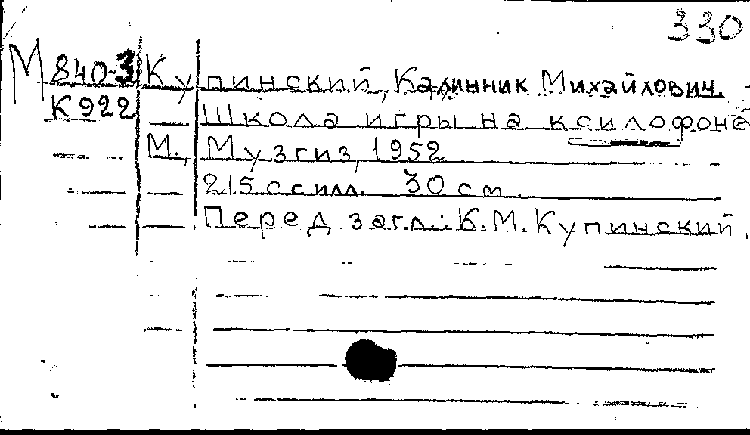 330
М 840-3 Купинский, Калинник Михайлович.
К922 Школа игры на ксилофоне
М., Музгиз, 1952
215 с с илл. 30 см.
Перед загл.: К.М. Купинский.